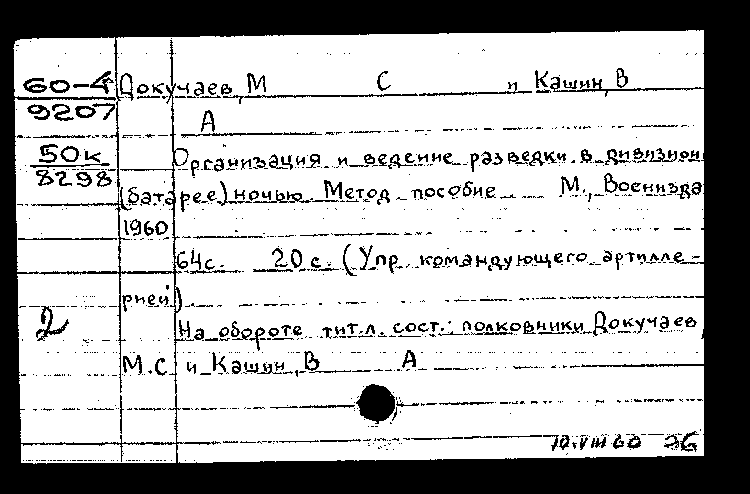 60-4 Докучаев, М С и Кашин, В
9207
А
50к Организация и ведение разведки в дивизион
8298
(батарее) ночью Метод пособие М., Воениздa
1960
64с. 20 с. (Упр. командующего артилле-
рией)
2
На обороте тит. л. сост.: полковники Докучаев,
М.С и Кашин, В А
10.VIII 60